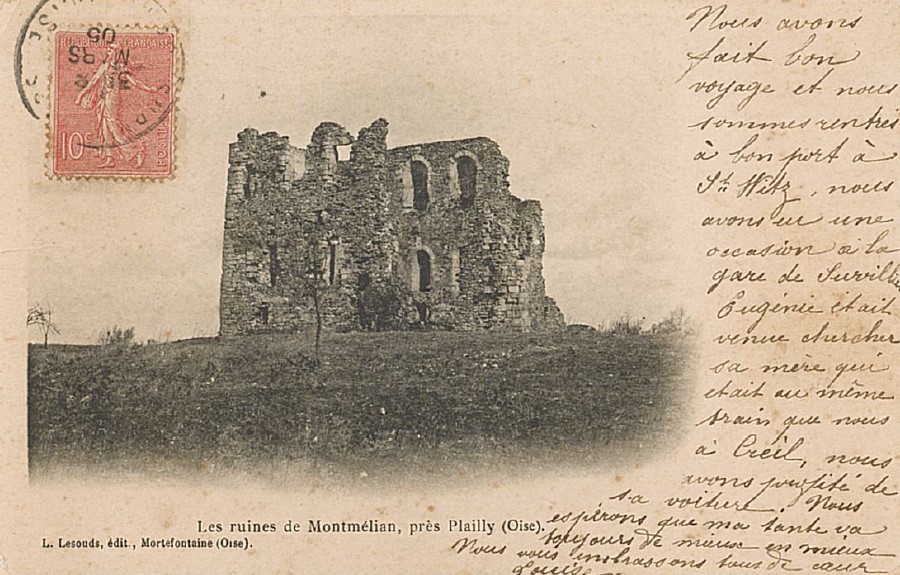 RÉPUBLIQUE FRANÇAISE
10c
POSTES
MARS
05
Nous avons
fait bon
voyage et nous
sommes rentrés
à bon port à
St Witz, nous
avons eu une
occasion à la
gare de Survilliers
Eugénie était
venue chercher
sa mère qui
était au même
train que nous
à Creil, nous
avons profité de
sa voiture. Nous
espérons que ma tante va
toujours de mieux en mieux
Nous vous embrassons tous de cœur
Louise
Les ruines de Montmélian, près Plailly (Oise).
L. Lesouds, édit., Mortefontaine (Oise).